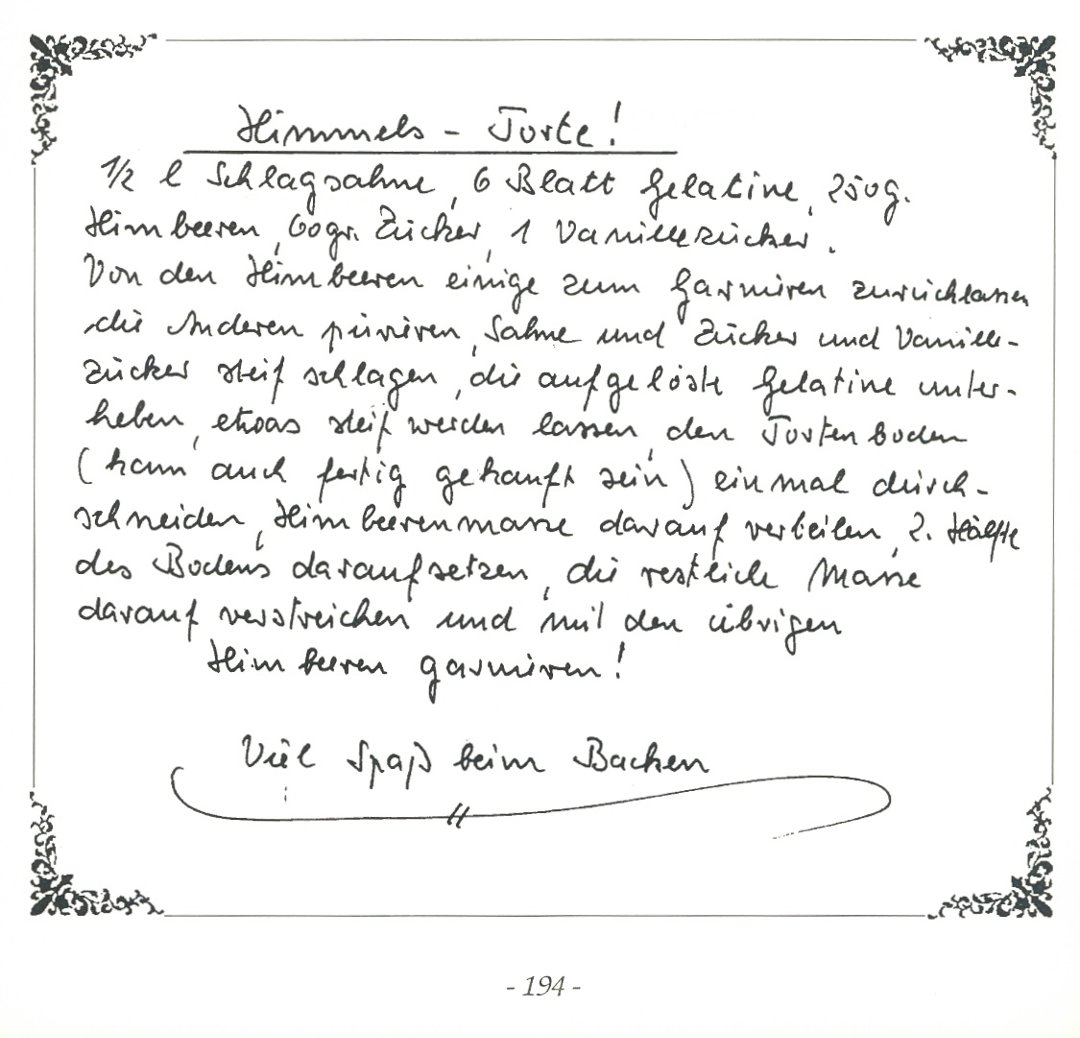 Himmels - Torte!
1/2 l Schlagsahne, 6 Blatt Gelatine, 250g.
Himbeeren, 60gr. Zucker, 1 Vanillezucker.
Von den Himbeeren einige zum Garnieren zurücklassen
die Anderen pürieren, Sahne und Zucker und Vanille-
zucker steif schlagen, die aufgelöste Gelatine unter-
heben, etwas steif werden lassen, den Tortenboden
(kann auch fertig gekauft sein) einmal durch-
schneiden, Himbeerenmasse darauf verteilen, 2. Hälfte
des Bodens daraufsetzen, die restliche Masse
darauf verstreichen und mit den übrigen
Himbeeren garnieren!
Viel Spaß beim Backen
- 194 -